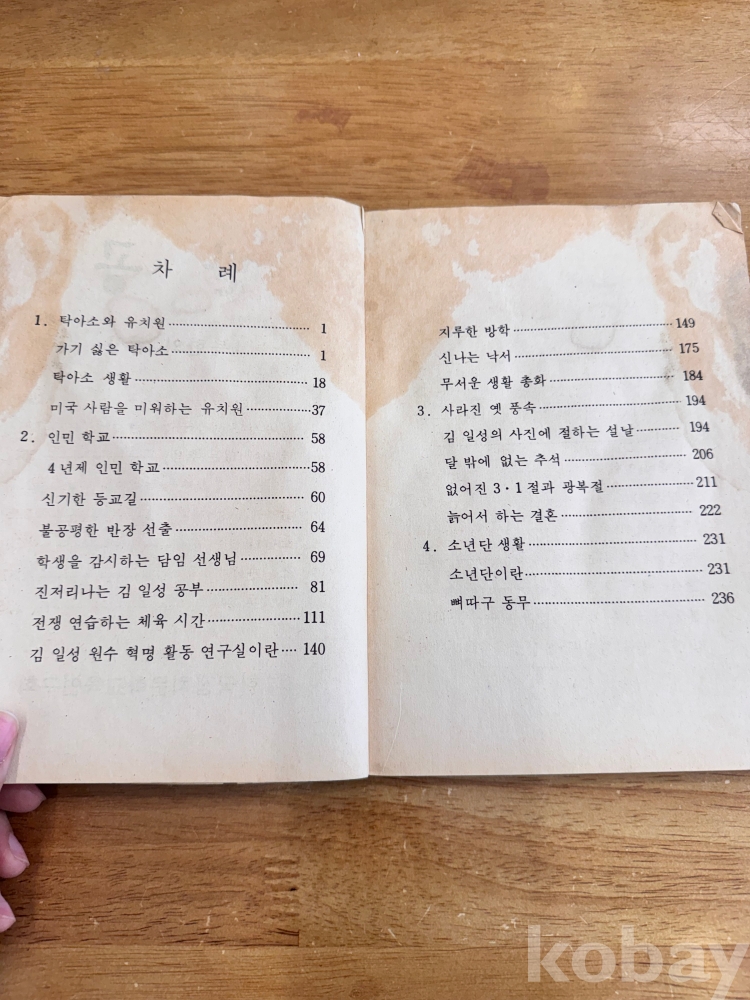 차 례
1. 탁아소와 유치원 ···················· 1
가기 싫은 탁아소 ···················· 1
탁아소 생활 ···················· 18
미국 사람을 미워하는 유치원 ············ 37
2. 인민 학교 ···················· 58
4년제 인민 학교 ···················· 58
신기한 등교길 ···················· 60
불공평한 반장 선출 ···················· 64
학생을 감시하는 담임 선생님 ············ 69
진저리나는 김 일성 공부 ················ 81
전쟁 연습하는 체육 시간 ················ 111
김 일성 원수 혁명 활동 연구실이란 ···· 140
지루한 방학 ···················· 149
신나는 낙서 ···················· 175
무서운 생활 총화 ···················· 184
3. 사라진 옛 풍속 ···················· 194
김 일성의 사진에 절하는 설날 ········ 194
달 밖에 없는 추석 ···················· 206
없어진 3·1절과 광복절 ················ 211
늙어서 하는 결혼 ···················· 222
4. 소년단 생활 ···················· 231
소년단이란 ···················· 231
뼈따구 동무 ···················· 236
kobay